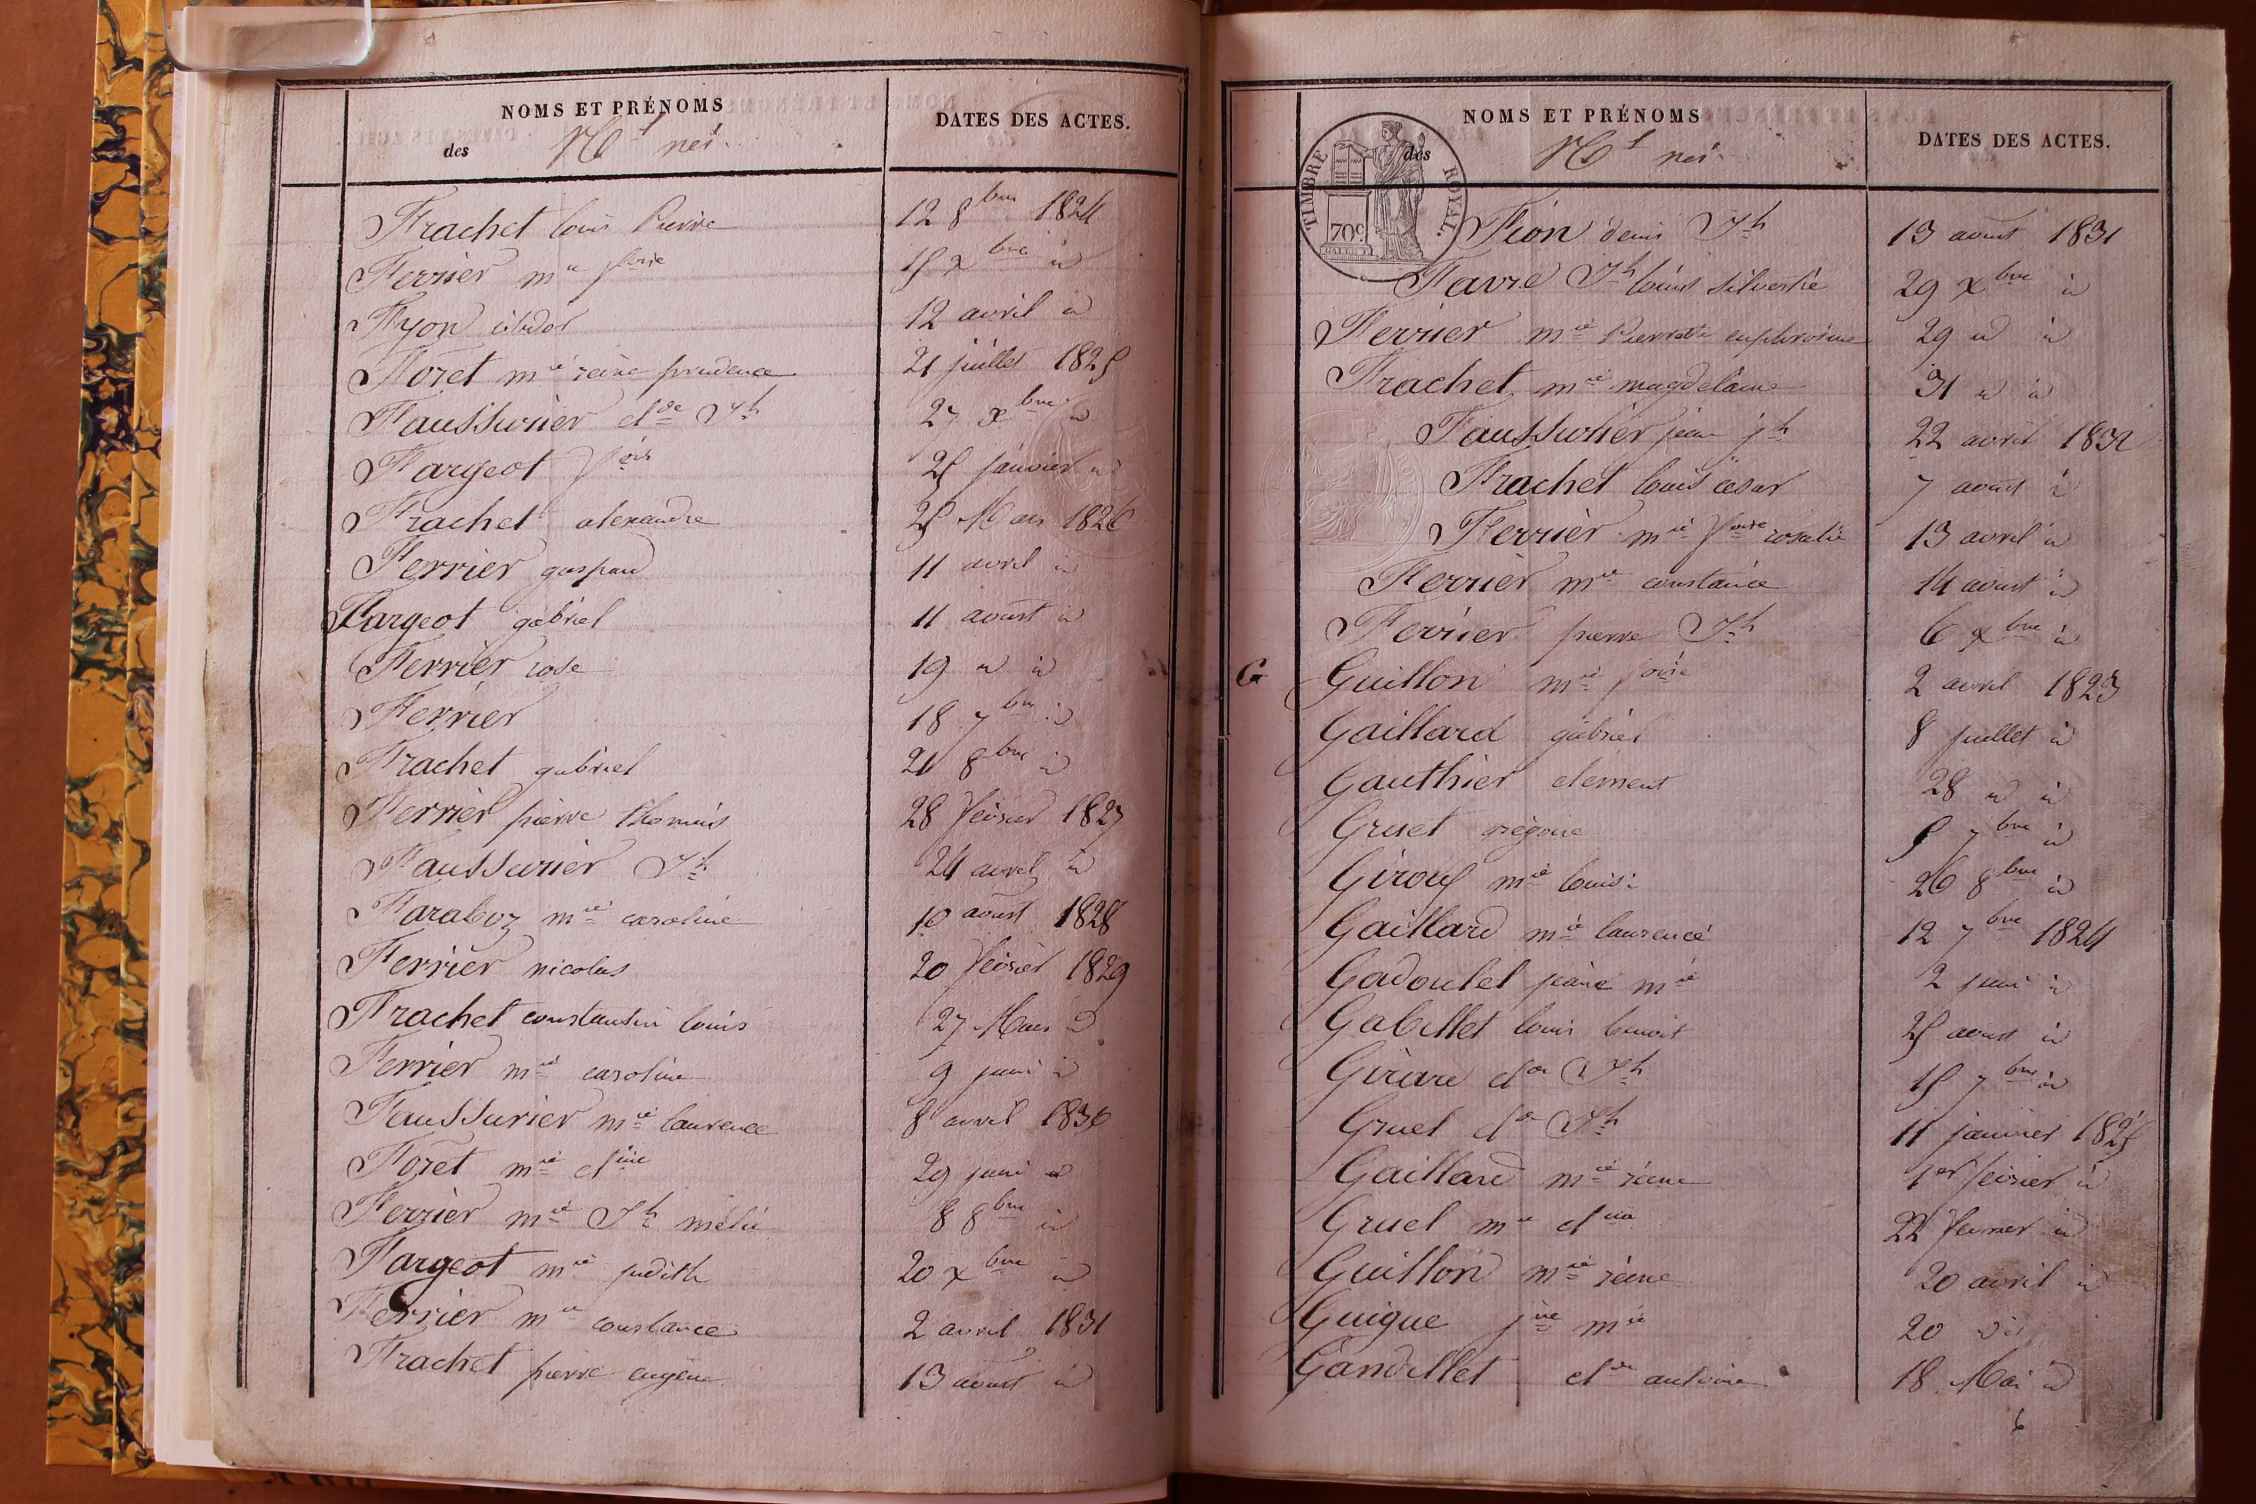 NOMS ET PRÉNOMS
des nés
DATES DES ACTES.
Frachet louis Pierre 12 8bre 1824
Ferrier mie foise 15 xbre id
Fyon isidor 12 avril id
Floret mie reine prudence 21 juillet 1825
Faussurier clde Jh 27 xbre id
Fargeot fois 25 janvier id
Frachet alexandre 25 Mars 1826
Ferrier gaspard 11 avril id
Fargeot gabriel 11 aoust id
Ferrier rose 19 id id
Ferrier 18 7bre id
Frachet gabriel 21 8bre id
Ferrier pierre thomas 28 février 1827
Faussurier Jh 24 avril id
Faraboz mie caroline 10 aoust 1828
Ferrier nicolas 20 février 1829
Frachet constantin louis 27 Mars id
Ferrier mie caroline 9 juin id
Faussurier mie laurence 8 avril 1830
Foret mie cline 29 juin id
Ferrier mie Jh mélie 8 8bre id
Fargeot mie judith 20 xbre id
Ferrier mie constance 2 avril 1831
Frachet pierre eugene 13 aoust id
NOMS ET PRÉNOMS
des nés
DATES DES ACTES.
TIMBRE ROYAL.
70c
Fion denis Jh 13 aoust 1831
Favre Jh louis silvestre 29 xbre id
Ferrier mie Pierrette euphrosine 29 id id
Frachet mie magdelaine 31 id id
Faussurier jean jh 22 avril 1832
Frachet louis cesar 7 aoust id
Ferrier mie foise rosalie 13 avril id
Ferrier mie constance 14 aoust id
Ferrier pierre Jh 6 xbre id
G Guillon mie foise 2 avril 1823
Gaillard gabriel 8 juillet id
Gauthier clement 28 id id
Gruet grégoire 5 7bre id
Girous mie louise 26 8bre id
Gaillard mie laurence 12 7bre 1824
Gadoulet pierre mie 2 juin id
Gabillet louis benoit 25 aoust id
Girard clde Jh 15 7bre id
Gruel clde Jh 11 janvier 1825
Gaillard mie reine 1er février id
Gruel mie clina 22 fevrier id
Guillon mie reine 20 avril id
Guigue jne mie 20 dit
Gandillet clde antoine 18 Mai id
6